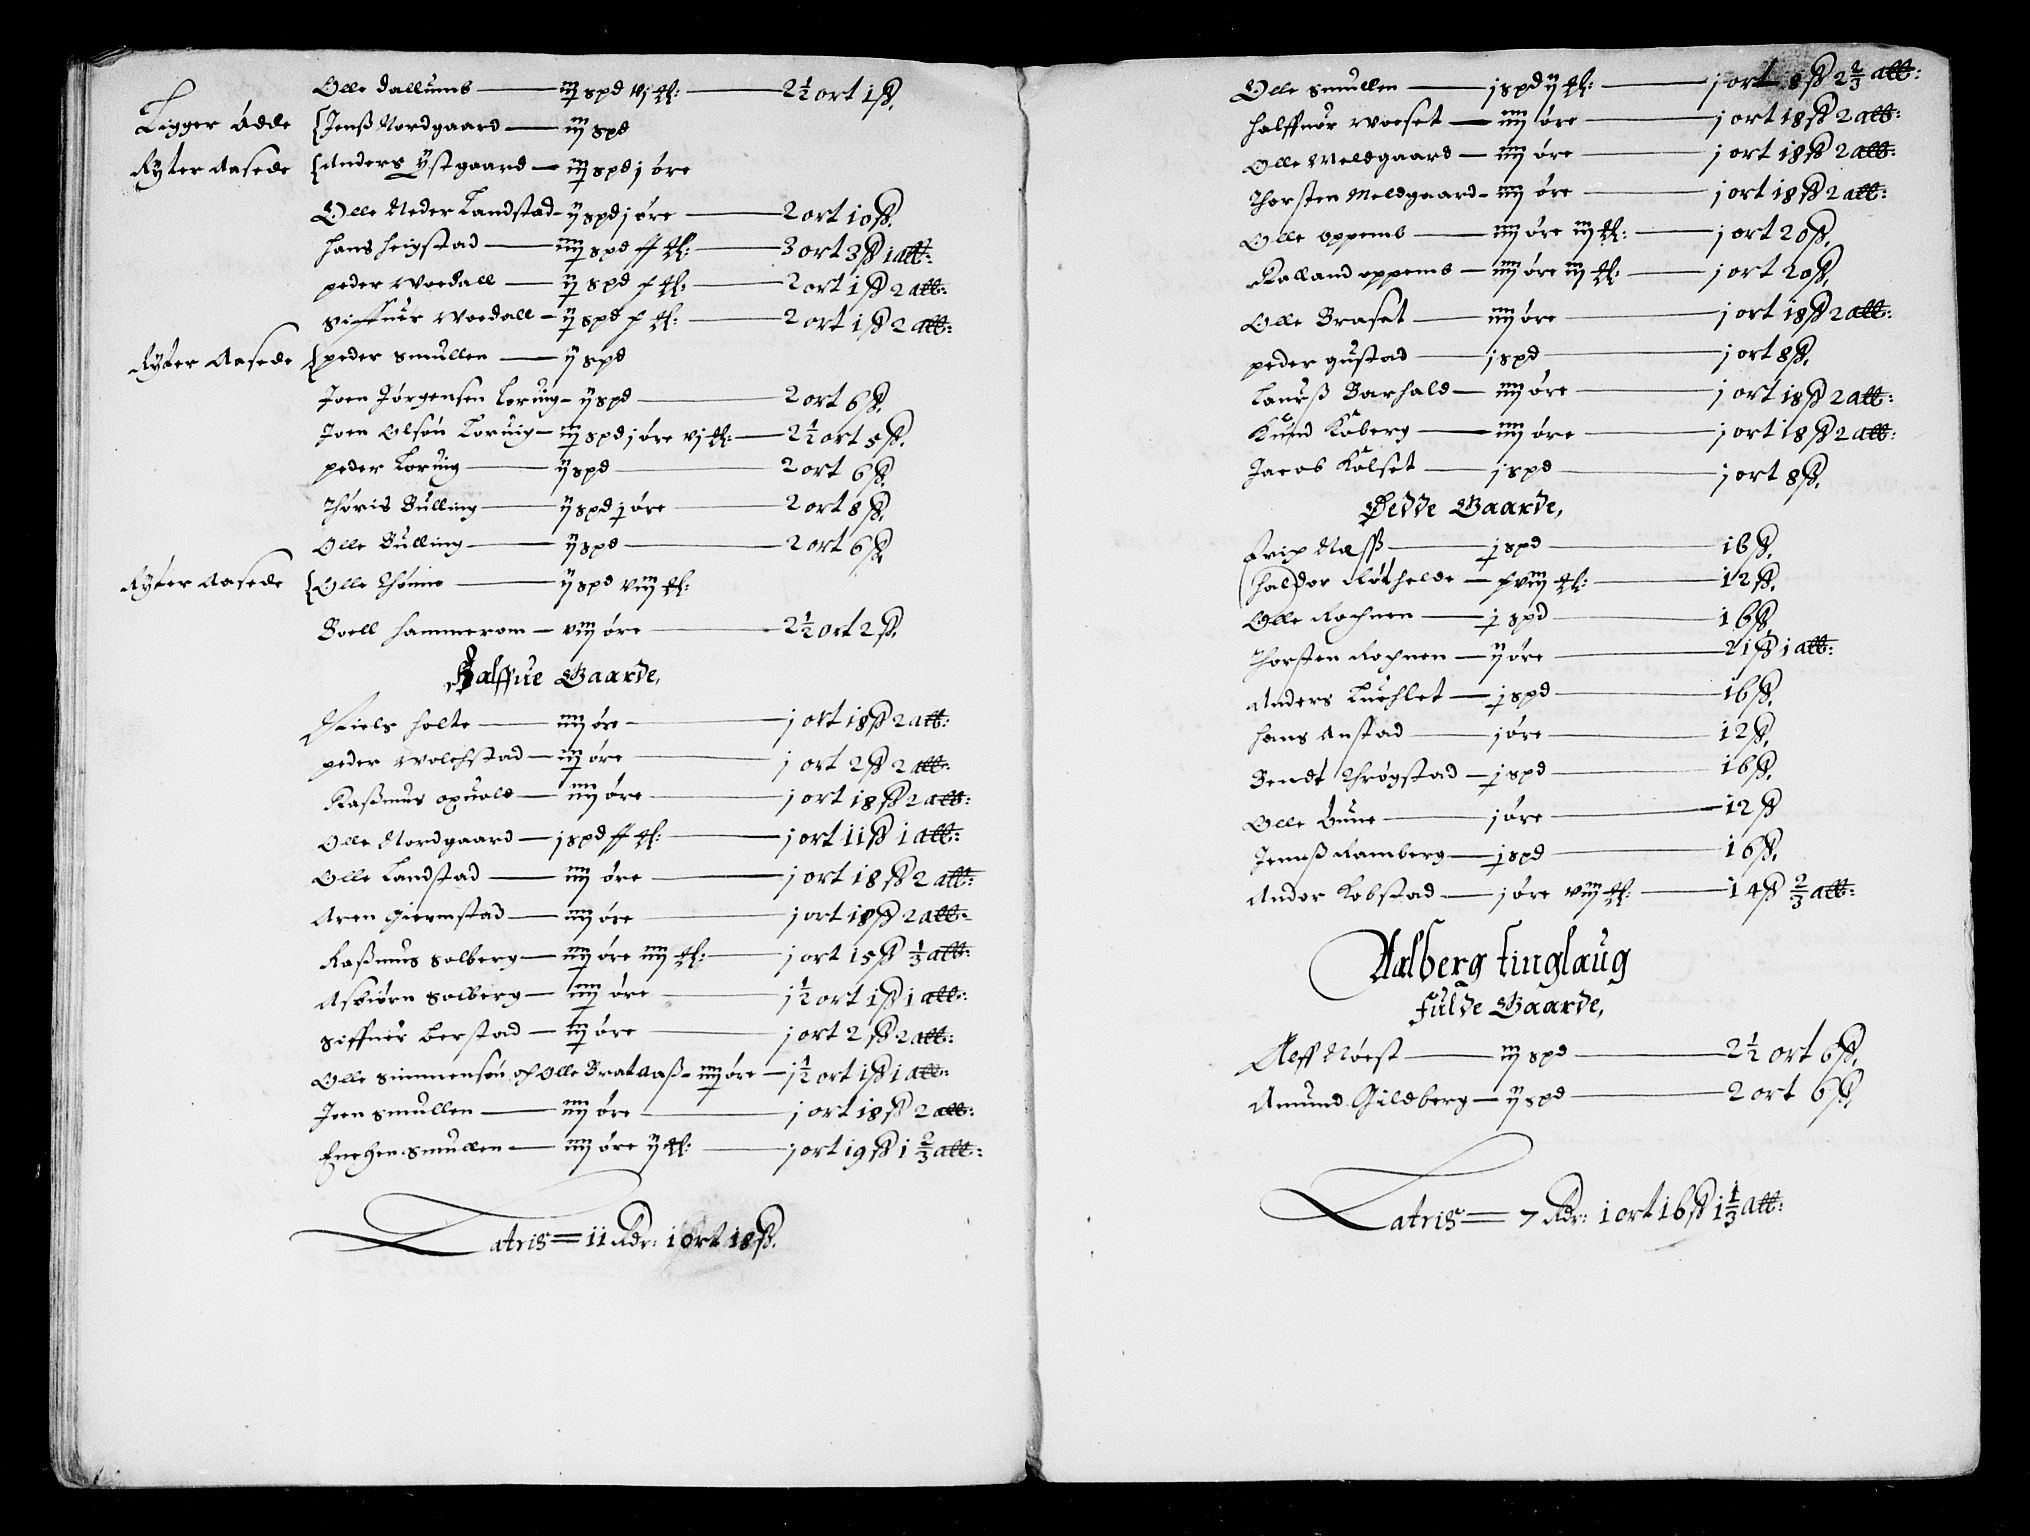 Olle Dallumb — iij spd vj ℔: — 2½ ort 1ß.
Ligger Ødde {Jenß Nordgaard — iiij spd
Ryter Aasede {Anders Ystgaard — iij spd j øre
Olle Neder Landstad — ij spd j øre — 2 ort 10ß.
Hans Heigstad — iiij spd ℔: — 3 ort 3ß 1 alb:
Peder Woedall — ij spd ℔: — 2 ort 1ß 2 alb:
Siffuer Woedall — ij spd ℔: — 2 ort 1ß 2 alb:
Ryter Aasede {Peder Smullen — ij spd
Joen Jørgensen Loruig — ij spd — 2 ort 6ß.
Joen Olsøn Loruig — ij spd j øre vj ℔: — 2½ ort 5ß.
Peder Loruig — ij spd — 2 ort 6ß.
Thøris Bulling — ij spd j øre — 2 ort 8ß.
Olle Bulling — ij spd — 2 ort 6ß.
Ryter Aasede {Olle Thønne — ij spd viij ℔:
Boell Hammerom — viij øre — 2½ ort 2ß.
Halffue Gaarde,
Niels Holte — iiij øre — j ort 18ß 2 alb:
Peder Wolchstad — iij øre — j ort 2ß 2 alb:
Raßmus Opuold — iiij øre — j ort 18ß 2 alb:
Olle Nordgaard — j spd ℔: — j ort 11ß 1 alb:
Olle Landstad — iiij øre — j ort 18ß 2 alb:
Aren Giermstad — iiij øre — j ort 18ß 2 alb:
Raßmus Solberg — iiij øre iiij ℔: — j ort 15ß ⅓ alb:
Asbiørn Solberg — iiij øre — j½ ort 1ß 1 alb:
Siffuer Berstad — iij øre — j ort 2ß 2 alb:
Olle Simmensøn och Olle Brataaß — iiij øre — j½ ort 1ß 1 alb:
Joen Smullen — iiij øre — j ort 18ß 2 alb:
Enchen Smullen — iiij øre ij ℔: — j ort 19ß 1⅔ alb:
Latris = 11 Rdr: 1 ort 18ß.
Olle Smullen — j spd ij ℔: — j ort 8ß 2⅔ alb:
Halffuor Woeset — iiij øre — j ort 18ß 2 alb:
Olle Meldgaard — iiij øre — j ort 18ß 2 alb:
Thorsten Meldgaard — iiij øre — j ort 18ß 2 alb:
Olle Oppemb — iiij øre iij ℔: — j ort 20ß.
Kalland Oppemb — iiij øre iij ℔: — j ort 20ß.
Olle Braset — iiij øre — j ort 18ß 2 alb:
Peder Gustad — j spd — j ort 8ß.
Lauriß Barhald — iiij øre — j ort 18ß 2 alb:
Knud Koberg — iiij øre — j ort 18ß 2 alb:
Jacob Kolset — j spd — j ort 8ß.
Øedde Gaarde,
Erich Næß — j spd — 16ß.
Haldor Røthelde — viij ℔: — 12ß.
Olle Rochnen — j spd — 16ß.
Thorsten Rochnen — ij øre — 21ß 1 alb:
Anders Luchlet — j spd — 16ß.
Hans Anstad — j øre — 12ß.
Bendt Thrøgstad — j spd — 16ß.
Olle Bune — j øre — 12ß
Jennß Ramberg — j spd — 16ß.
Andor Kobstad — j øre viij ℔: — 14ß ⅔ alb:
Aalberg tinglaug
Fulde Gaarde,
Alff Nøest — iij spd — 2½ ort 6ß.
Amund Gildberg — ij spd — 2 ort 6ß.
Latris = 7 Rdr: 1 ort 16ß 1⅓ alb: